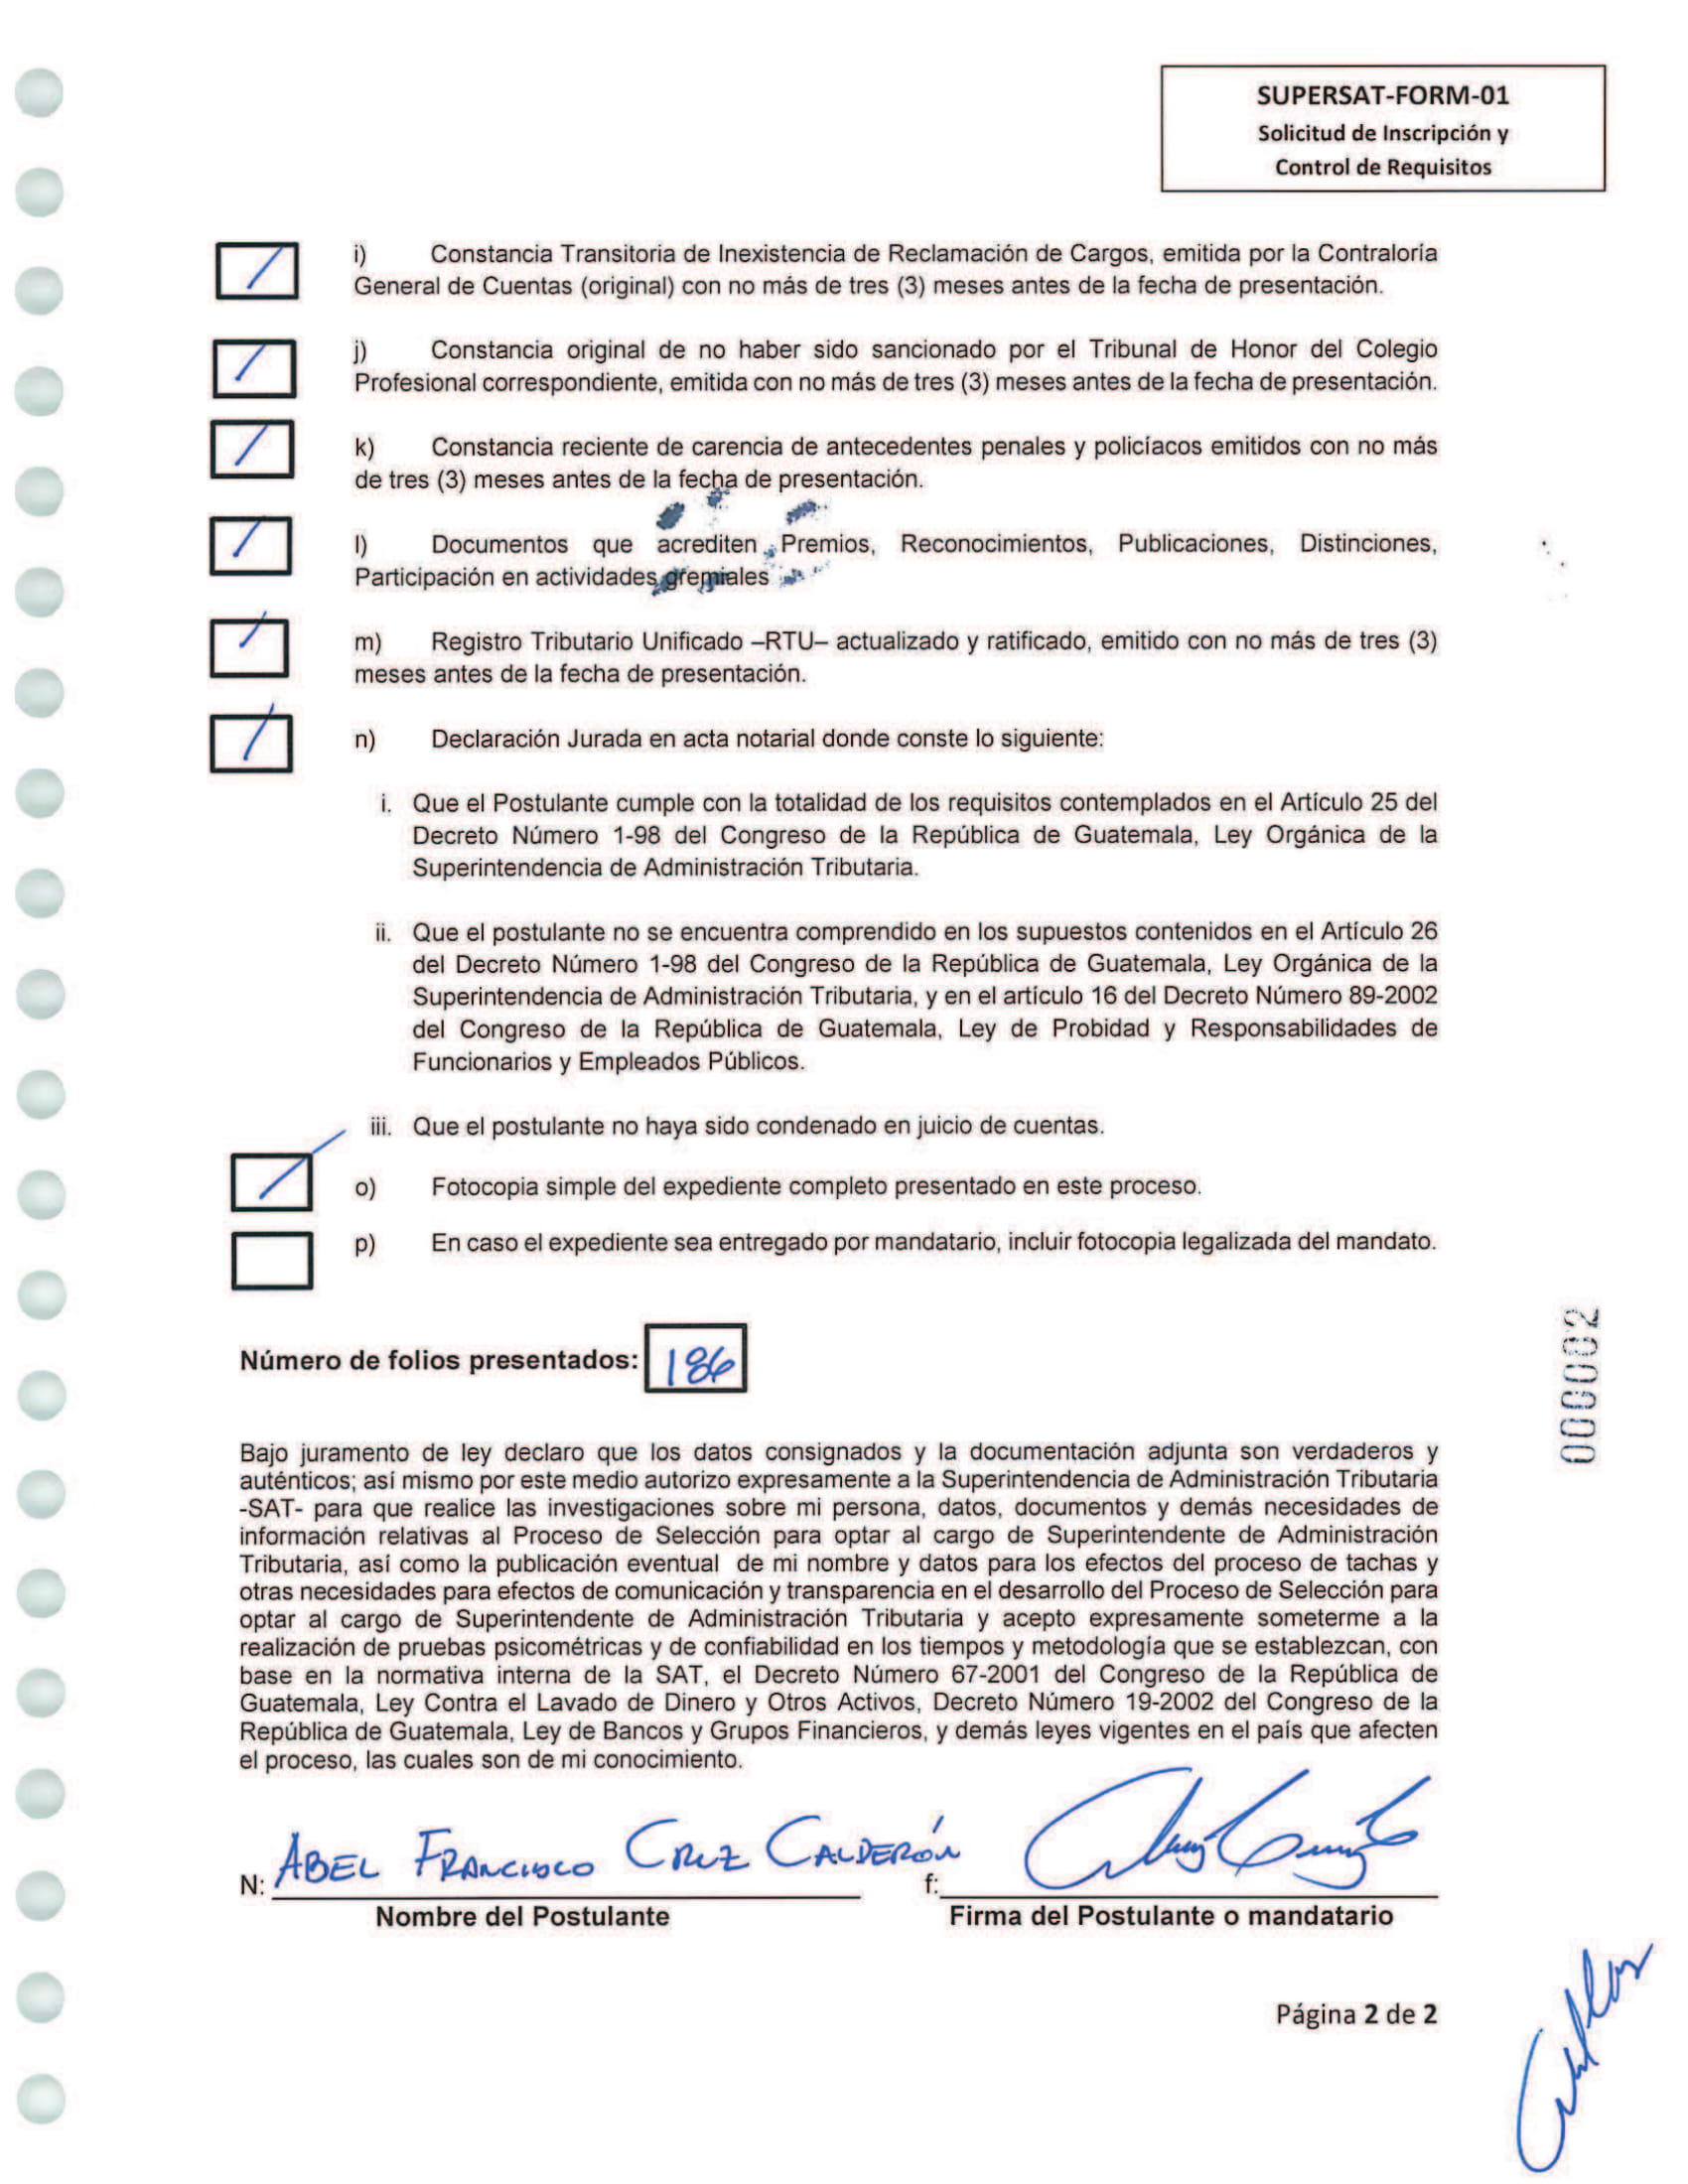 SUPERSAT-FORM-01
Solicitud de Inscripción y
Control de Requisitos
i) Constancia Transitoria de Inexistencia de Reclamación de Cargos, emitida por la Contraloría
General de Cuentas (original) con no más de tres (3) meses antes de la fecha de presentación.
j) Constancia original de no haber sido sancionado por el Tribunal de Honor del Colegio
Profesional correspondiente, emitida con no más de tres (3) meses antes de la fecha de presentación.
k) Constancia reciente de carencia de antecedentes penales y policíacos emitidos con no más
de tres (3) meses antes de la fecha de presentación.
l) Documentos que acrediten Premios, Reconocimientos, Publicaciones, Distinciones,
Participación en actividades gremiales
m) Registro Tributario Unificado –RTU– actualizado y ratificado, emitido con no más de tres (3)
meses antes de la fecha de presentación.
n) Declaración Jurada en acta notarial donde conste lo siguiente:
i. Que el Postulante cumple con la totalidad de los requisitos contemplados en el Artículo 25 del
Decreto Número 1-98 del Congreso de la República de Guatemala, Ley Orgánica de la
Superintendencia de Administración Tributaria.
ii. Que el postulante no se encuentra comprendido en los supuestos contenidos en el Artículo 26
del Decreto Número 1-98 del Congreso de la República de Guatemala, Ley Orgánica de la
Superintendencia de Administración Tributaria, y en el artículo 16 del Decreto Número 89-2002
del Congreso de la República de Guatemala, Ley de Probidad y Responsabilidades de
Funcionarios y Empleados Públicos.
iii. Que el postulante no haya sido condenado en juicio de cuentas.
o) Fotocopia simple del expediente completo presentado en este proceso.
p) En caso el expediente sea entregado por mandatario, incluir fotocopia legalizada del mandato.
Número de folios presentados: 186
000002
Bajo juramento de ley declaro que los datos consignados y la documentación adjunta son verdaderos y
auténticos; así mismo por este medio autorizo expresamente a la Superintendencia de Administración Tributaria
-SAT- para que realice las investigaciones sobre mi persona, datos, documentos y demás necesidades de
información relativas al Proceso de Selección para optar al cargo de Superintendente de Administración
Tributaria, así como la publicación eventual de mi nombre y datos para los efectos del proceso de tachas y
otras necesidades para efectos de comunicación y transparencia en el desarrollo del Proceso de Selección para
optar al cargo de Superintendente de Administración Tributaria y acepto expresamente someterme a la
realización de pruebas psicométricas y de confiabilidad en los tiempos y metodología que se establezcan, con
base en la normativa interna de la SAT, el Decreto Número 67-2001 del Congreso de la República de
Guatemala, Ley Contra el Lavado de Dinero y Otros Activos, Decreto Número 19-2002 del Congreso de la
República de Guatemala, Ley de Bancos y Grupos Financieros, y demás leyes vigentes en el país que afecten
el proceso, las cuales son de mi conocimiento.
N: ABEL FRANCISCO CRUZ CALDERÓN f:
Nombre del Postulante Firma del Postulante o mandatario
Página 2 de 2